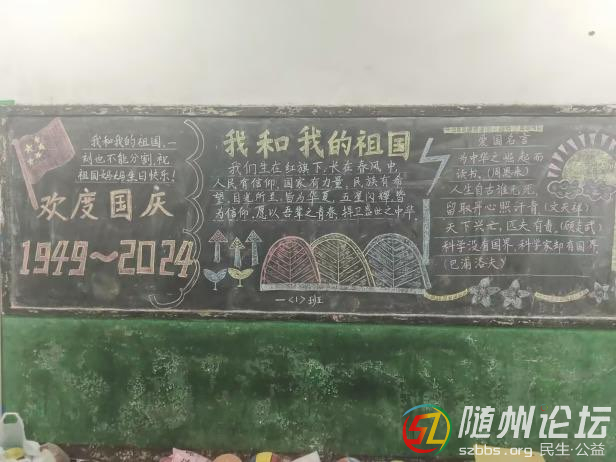 我和我的祖国,一
刻也不能分割,祝
祖国妈妈生日快乐!
欢度国庆
1949~2024
我和我的祖国
我们生在红旗下,长在春风中,
人民有信仰,国家有力量,民族有希
望,目光所至,皆为华夏,五星闪耀,皆
为信仰,愿以吾辈之青春,捍卫盛世之中华.
一<1>班
爱国名言
为中华之崛起而
读书。(周恩来)
人生自古谁无死,
留取丹心照汗青。(文天祥)
天下兴亡,匹夫有责。(顾炎武)
科学没有国界,科学家却有国界。
(巴甫洛夫)
随州论坛
szbbs.org 民生·公益